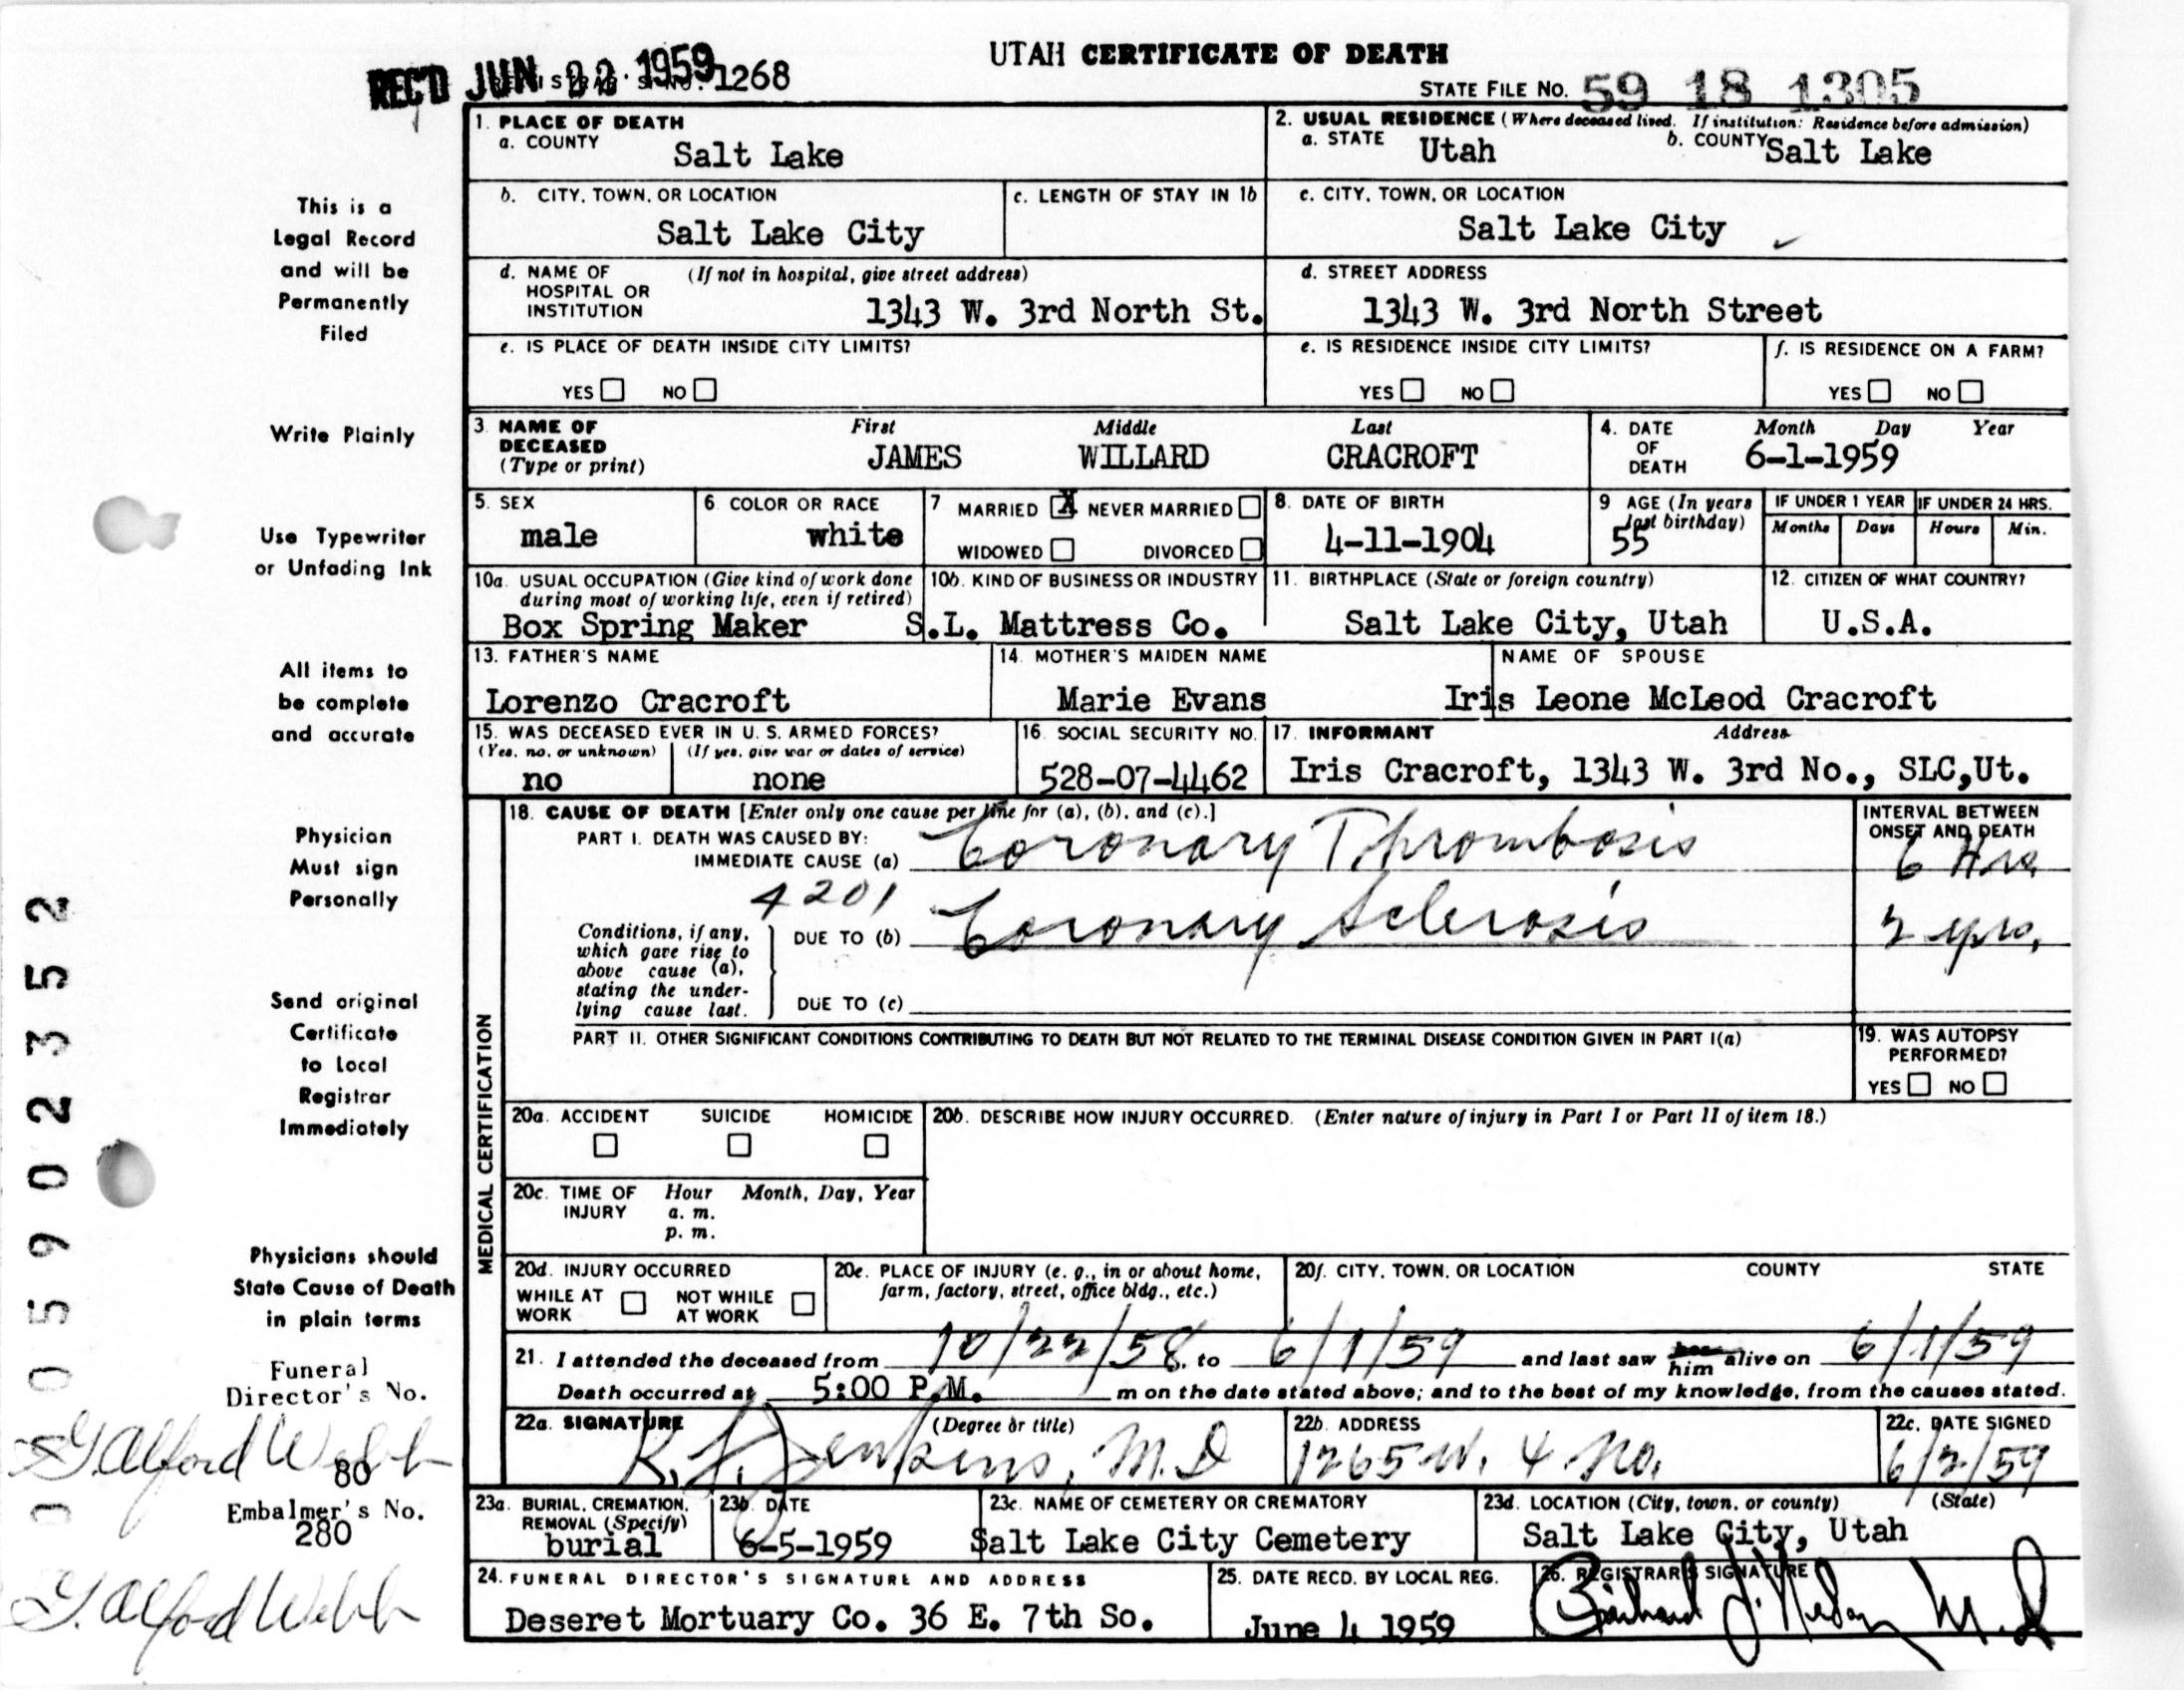 UTAH CERTIFICATE OF DEATH
REC'D JUN 22 1959 1268
STATE FILE NO. 59 18 1305
1. PLACE OF DEATH
a. COUNTY Salt Lake
2. USUAL RESIDENCE (Where deceased lived. If institution: Residence before admission)
a. STATE Utah b. COUNTY Salt Lake
b. CITY, TOWN, OR LOCATION Salt Lake City
c. LENGTH OF STAY IN 1b
c. CITY, TOWN, OR LOCATION Salt Lake City
d. NAME OF HOSPITAL OR INSTITUTION (If not in hospital, give street address)
1343 W. 3rd North St.
d. STREET ADDRESS
1343 W. 3rd North Street
e. IS PLACE OF DEATH INSIDE CITY LIMITS?
YES NO
e. IS RESIDENCE INSIDE CITY LIMITS?
YES NO
f. IS RESIDENCE ON A FARM?
YES NO
3. NAME OF DECEASED (Type or print)
First Middle Last
JAMES WILLARD CRACROFT
4. DATE OF DEATH Month Day Year
6-1-1959
5. SEX male
6 COLOR OR RACE white
7 MARRIED X NEVER MARRIED
WIDOWED DIVORCED
8. DATE OF BIRTH 4-11-1904
9 AGE (In years last birthday) 55
IF UNDER 1 YEAR Months Days
IF UNDER 24 HRS. Hours Min.
10a. USUAL OCCUPATION (Give kind of work done during most of working life, even if retired)
Box Spring Maker
10b. KIND OF BUSINESS OR INDUSTRY
S.L. Mattress Co.
11. BIRTHPLACE (State or foreign country)
Salt Lake City, Utah
12. CITIZEN OF WHAT COUNTRY?
U.S.A.
13. FATHER'S NAME
Lorenzo Cracroft
14. MOTHER'S MAIDEN NAME
Marie Evans
NAME OF SPOUSE
Iris Leone McLeod Cracroft
15. WAS DECEASED EVER IN U. S. ARMED FORCES?
(Yes, no, or unknown) (If yes, give war or dates of service)
no none
16. SOCIAL SECURITY NO.
528-07-4462
17. INFORMANT Address
Iris Cracroft, 1343 W. 3rd No., SLC,Ut.
MEDICAL CERTIFICATION
18. CAUSE OF DEATH [Enter only one cause per line for (a), (b), and (c).]
PART I. DEATH WAS CAUSED BY:
IMMEDIATE CAUSE (a) Coronary Thrombosis
INTERVAL BETWEEN ONSET AND DEATH
6 Hrs
4201
Conditions, if any, which gave rise to above cause (a), stating the underlying cause last.
DUE TO (b) Coronary Sclerosis
2 yrs.
DUE TO (c)
PART II. OTHER SIGNIFICANT CONDITIONS CONTRIBUTING TO DEATH BUT NOT RELATED TO THE TERMINAL DISEASE CONDITION GIVEN IN PART I(a)
19. WAS AUTOPSY PERFORMED?
YES NO
20a. ACCIDENT SUICIDE HOMICIDE
20b. DESCRIBE HOW INJURY OCCURRED. (Enter nature of injury in Part I or Part II of item 18.)
20c. TIME OF INJURY Hour Month, Day, Year
a. m.
p. m.
20d. INJURY OCCURRED
WHILE AT WORK NOT WHILE AT WORK
20e. PLACE OF INJURY (e. g., in or about home, farm, factory, street, office bldg., etc.)
20f. CITY, TOWN, OR LOCATION COUNTY STATE
21. I attended the deceased from 10/22/58, to 6/1/59 and last saw her him alive on 6/1/59
Death occurred at 5:00 P.M. m on the date stated above; and to the best of my knowledge, from the causes stated.
22a. SIGNATURE (Degree or title)
Jenkins, M.D
22b. ADDRESS
1265 W. 4 No.
22c. DATE SIGNED
6/2/59
23a. BURIAL, CREMATION, REMOVAL (Specify)
burial
23b. DATE
6-5-1959
23c. NAME OF CEMETERY OR CREMATORY
Salt Lake City Cemetery
23d. LOCATION (City, town, or county) (State)
Salt Lake City, Utah
24. FUNERAL DIRECTOR'S SIGNATURE AND ADDRESS
Deseret Mortuary Co. 36 E. 7th So.
25. DATE RECD. BY LOCAL REG.
June 4 1959
26. REGISTRAR'S SIGNATURE
M.D
This is a
Legal Record
and will be
Permanently
Filed
Write Plainly
Use Typewriter
or Unfading Ink
All items to
be complete
and accurate
Physician
Must sign
Personally
Send original
Certificate
to Local
Registrar
Immediately
Physicians should
State Cause of Death
in plain terms
Funeral
Director's No.
Alford Webb
80
Embalmer's No.
280
Alford Webb
005902352